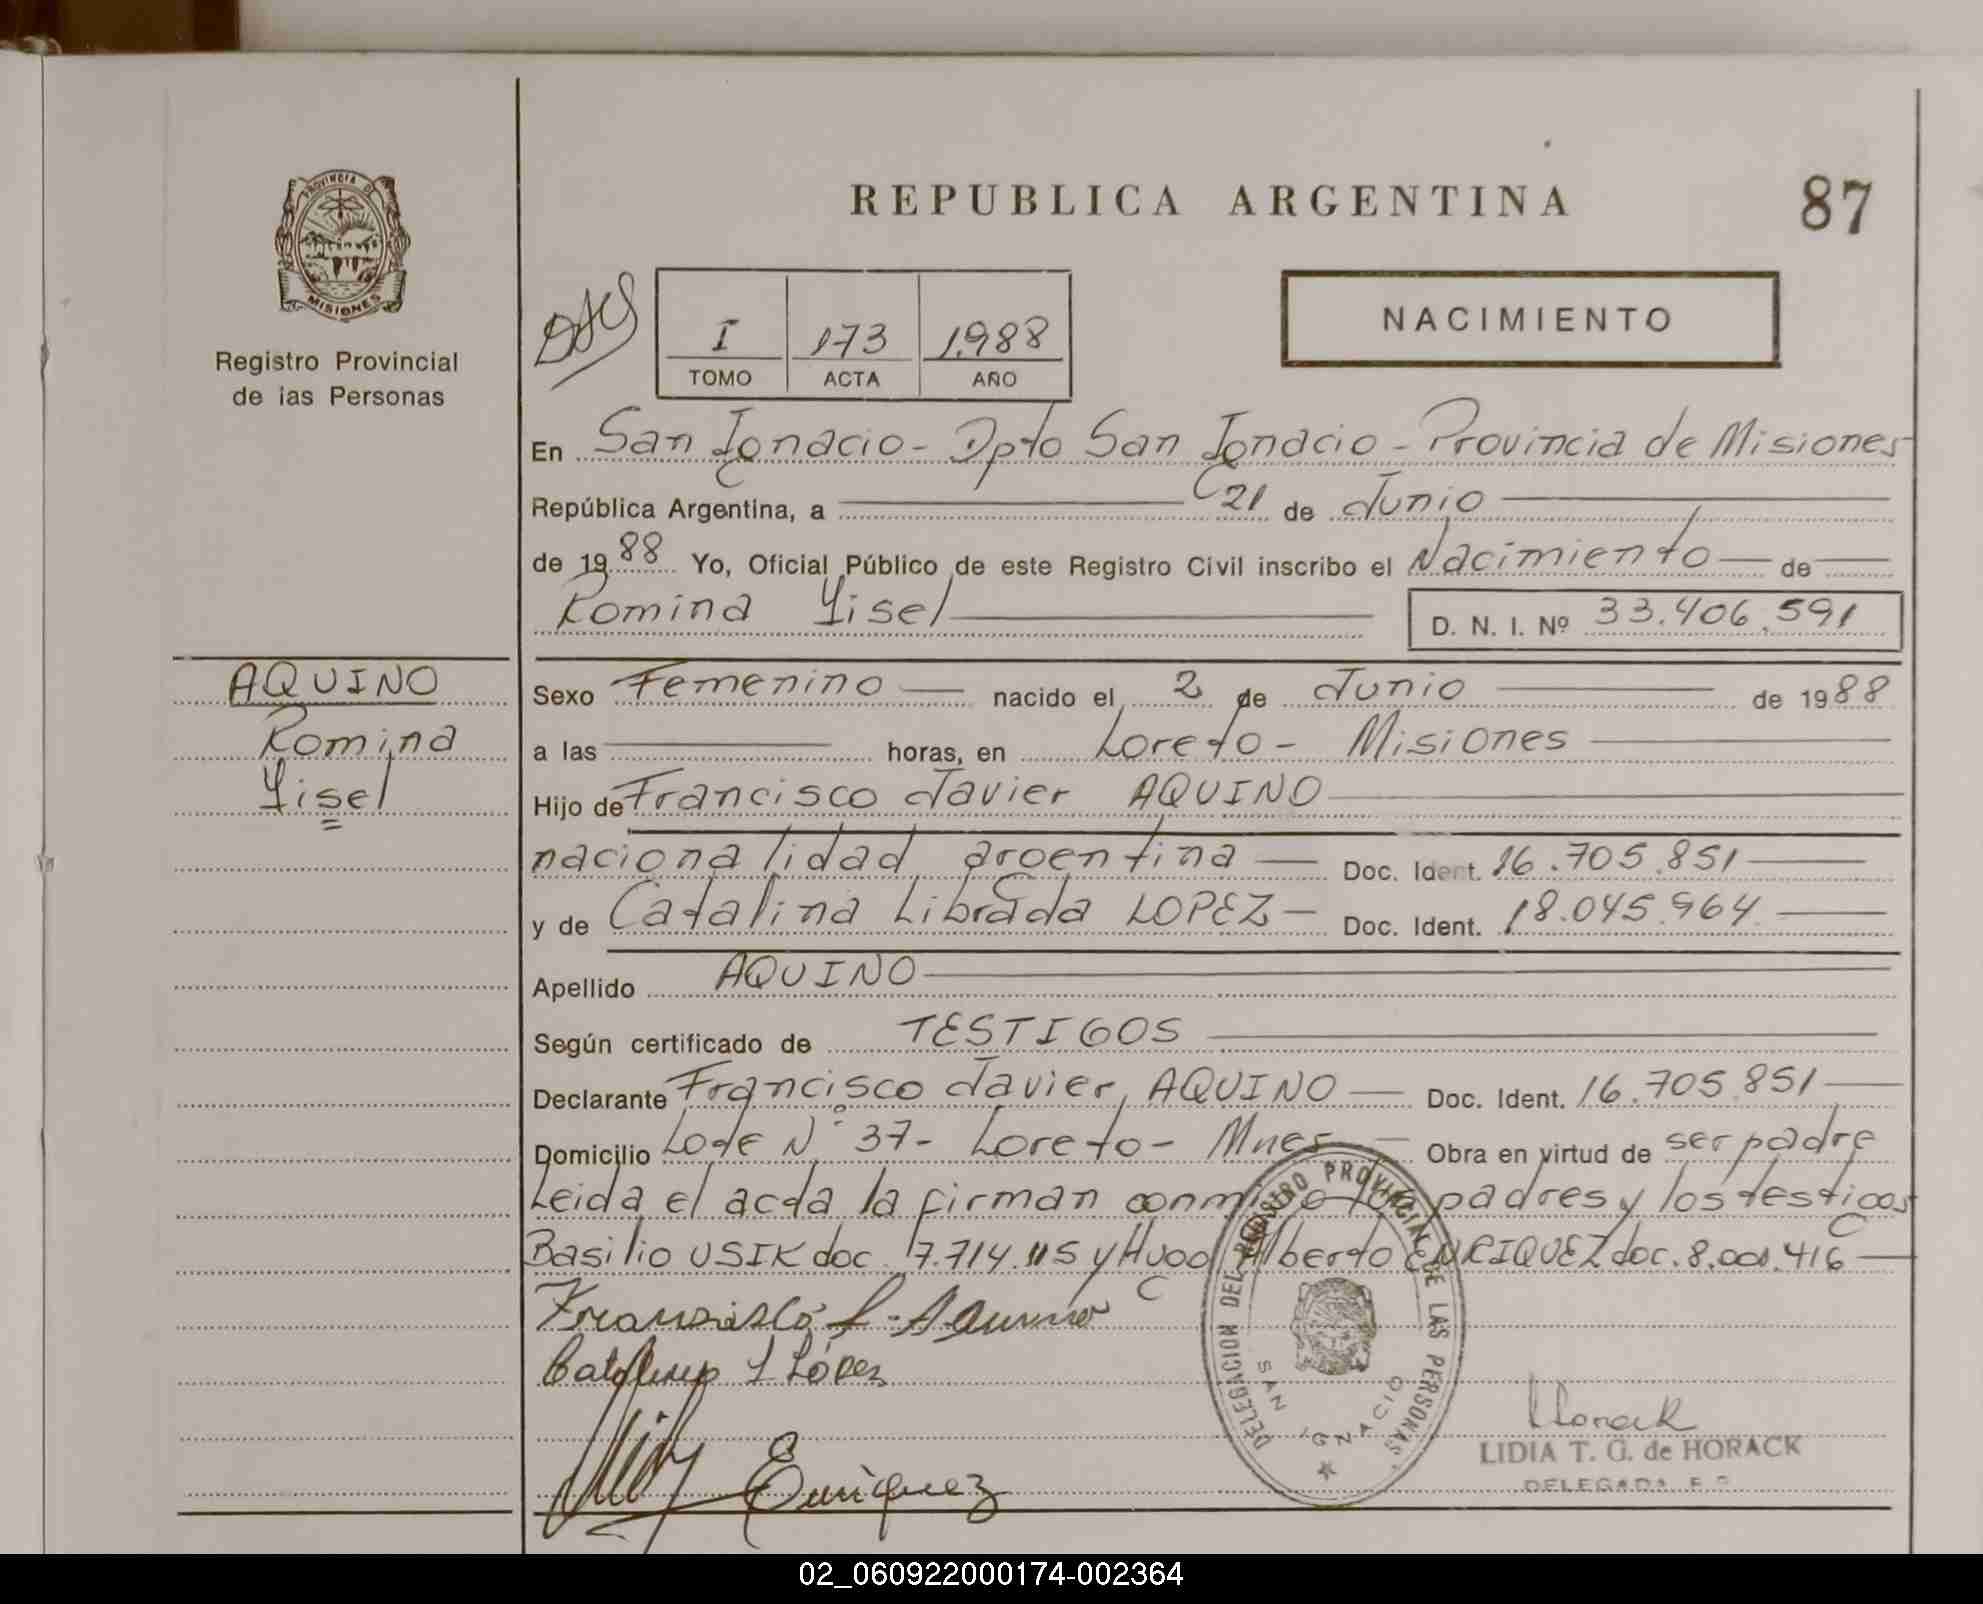 REPUBLICA ARGENTINA
87
PROVINCIA DE
MISIONES
Registro Provincial
de las Personas
I 173 1.988
TOMO ACTA AÑO
NACIMIENTO
En San Ignacio - Dpto San Ignacio - Provincia de Misiones
República Argentina, a 21 de Junio
de 1988 Yo, Oficial Público de este Registro Civil inscribo el Nacimiento de
Romina Yisel
D. N. I. Nº 33.406.591
AQUINO
Romina
Yisel
Sexo Femenino nacido el 2 de Junio de 1988
a las horas, en Loreto - Misiones
Hijo de Francisco Javier AQUINO
nacionalidad argentina Doc. Ident. 16.705.851
y de Catalina Librada LOPEZ - Doc. Ident. 18.045.964
Apellido AQUINO
Según certificado de TESTIGOS
Declarante Francisco Javier AQUINO Doc. Ident. 16.705.851
Domicilio Lote Nº 37 - Loreto - Mnes - Obra en virtud de ser padre
Leida el acta la firman conmigo los padres y los testigos
Basilio USIK doc. 7.714.115 y Hugo Alberto ENRIQUEZ doc. 8.001.416
Francisco J. Aquino
Catalina L López
Enriquez
DELEGACION DEL REGISTRO PROVINCIAL DE LAS PERSONAS
SAN IGNACIO
Horack
LIDIA T. G. de HORACK
DELEGADA
02_060922000174-002364